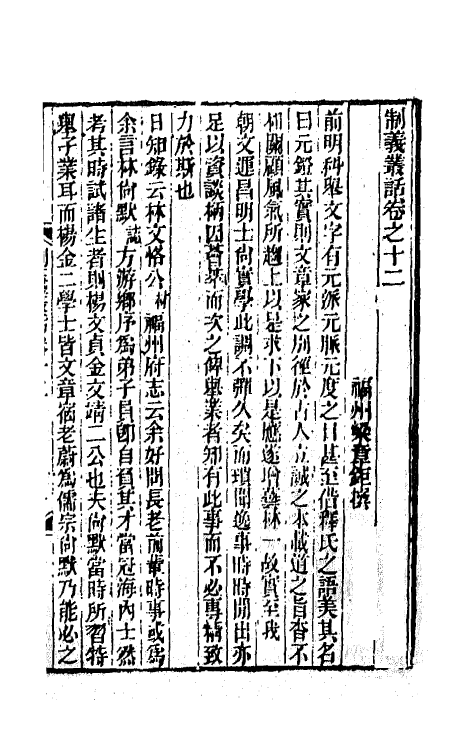 制義叢話卷之十二
福州梁章鉅撰
前明科舉文字有元派元脈元度之目甚至借釋氏之語美其名
曰元燈其實則文章家之別徑於古人立誠之本載道之旨杳不
相關顧風氣所趨上以是求下以是應遂增藝林一故實至我
朝文運昌明士尚實學此調不彈久矣而瑣聞逸事時時間出亦
足以資談柄因薈萃而次之俾舉業者知有此事而不必專精致
力於斯也
日知錄云林文恪公材福州府志云余好問長老前輩時事或為
余言林尚默誌方游鄉序為弟子員即自負其才當冠海內士然
考其時試諸生者則楊文貞金文靖二公也夫尚默當時所習特
舉子業耳而楊金二學士皆文章宿老蔚為儒宗尚默乃能必之